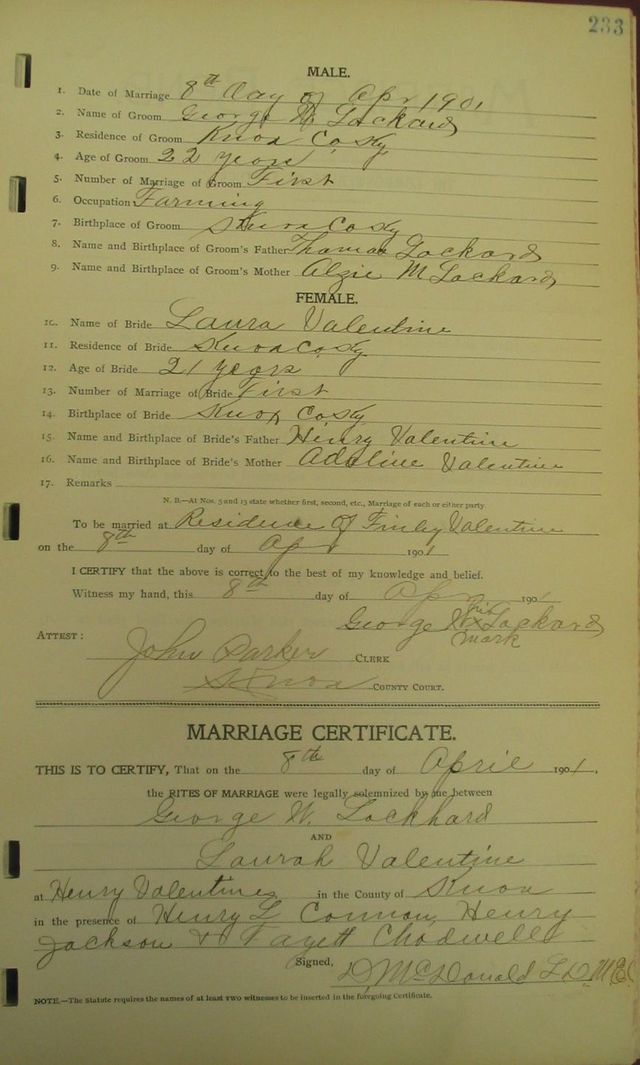 233
MALE.
1. Date of Marriage 8th Day of Apr 1901
2. Name of Groom George W Lockard
3. Residence of Groom Knox Co Ky
4. Age of Groom 22 years
5. Number of Marriage of Groom First
6. Occupation Farming
7. Birthplace of Groom Knox Co Ky
8. Name and Birthplace of Groom's Father Thomas Lockard
9. Name and Birthplace of Groom's Mother Alzie M Lockard
FEMALE.
10. Name of Bride Laura Valentine
11. Residence of Bride Knox Co Ky
12. Age of Bride 21 years
13. Number of Marriage of Bride First
14. Birthplace of Bride Knox Co Ky
15. Name and Birthplace of Bride's Father Henry Valentine
16. Name and Birthplace of Bride's Mother Adaline Valentine
17. Remarks
N. B.—At Nos. 5 and 13 state whether first, second, etc., Marriage of each or either party.
To be married at Residence of Finley Valentine
on the 8th day of Apr 1901
I CERTIFY that the above is correct to the best of my knowledge and belief.
Witness my hand, this 8th day of Apr 1901
George his x mark Lockard
ATTEST: John Parker CLERK
Knox COUNTY COURT.
MARRIAGE CERTIFICATE.
THIS IS TO CERTIFY, That on the 8th day of April 1901,
the RITES OF MARRIAGE were legally solemnized by me between
George W. Lockhard
AND
Laurah Valentine
at Henry Valentines in the County of Knox
in the presence of Henry L Connon, Henry
Jackson & Fayett Chadwell
Signed, D, McDonald
NOTE.—The Statute requires the names of at least two witnesses to be inserted in the foregoing Certificate.